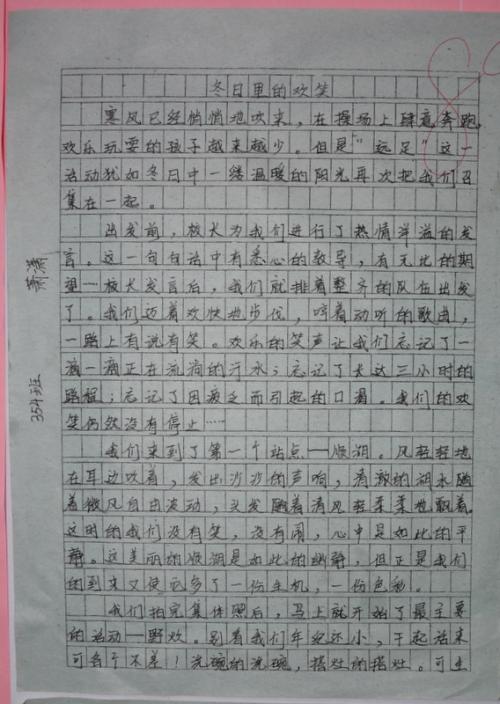 冬日里的欢笑
寒风已经悄悄地吹来，在操场上肆意奔跑
欢乐玩耍的孩子越来越少。但是“远足”这一
活动犹如冬日中一缕温暖的阳光再次把我们召
集在一起。
出发前，校长为我们进行了热情洋溢的发
言。这一句句话中有悉心的教导，有无比的期
望…校长发言后，我们就排着整齐的队伍出发
了。我们迈着欢快地步伐，哼着动听的歌曲，
一路上有说有笑。欢乐的笑声让我们忘记了一
滴一滴正在流淌的汗水；忘记了长达三小时的
路程；忘记了因疲乏而引起的口渴。我们的欢
笑仍然没有停止……
我们来到了第一个站点—顺湖。风轻轻地
在耳边吹着，发出沙沙的声响，清澈的湖水随
着微风自由波动，头发随着清风轻柔柔地飘着。
这时的我们没有笑，没有闹，心中是如此的平
静。这美丽的顺湖是如此的幽静，但正是我们
的到来又使它多了一份生机，一份色彩。
我们拍完集体照后，马上就开始了最主要
的活动—野炊。别看我们年纪还小，干起活来
可各个不差！洗碗的洗碗，搭灶的搭灶。可生
萧潇
354班